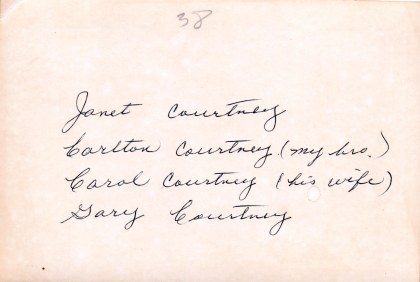 38
Janet Courtney
Carlton Courtney (my bro.)
Carol Courtney (his wife)
Gary Courtney